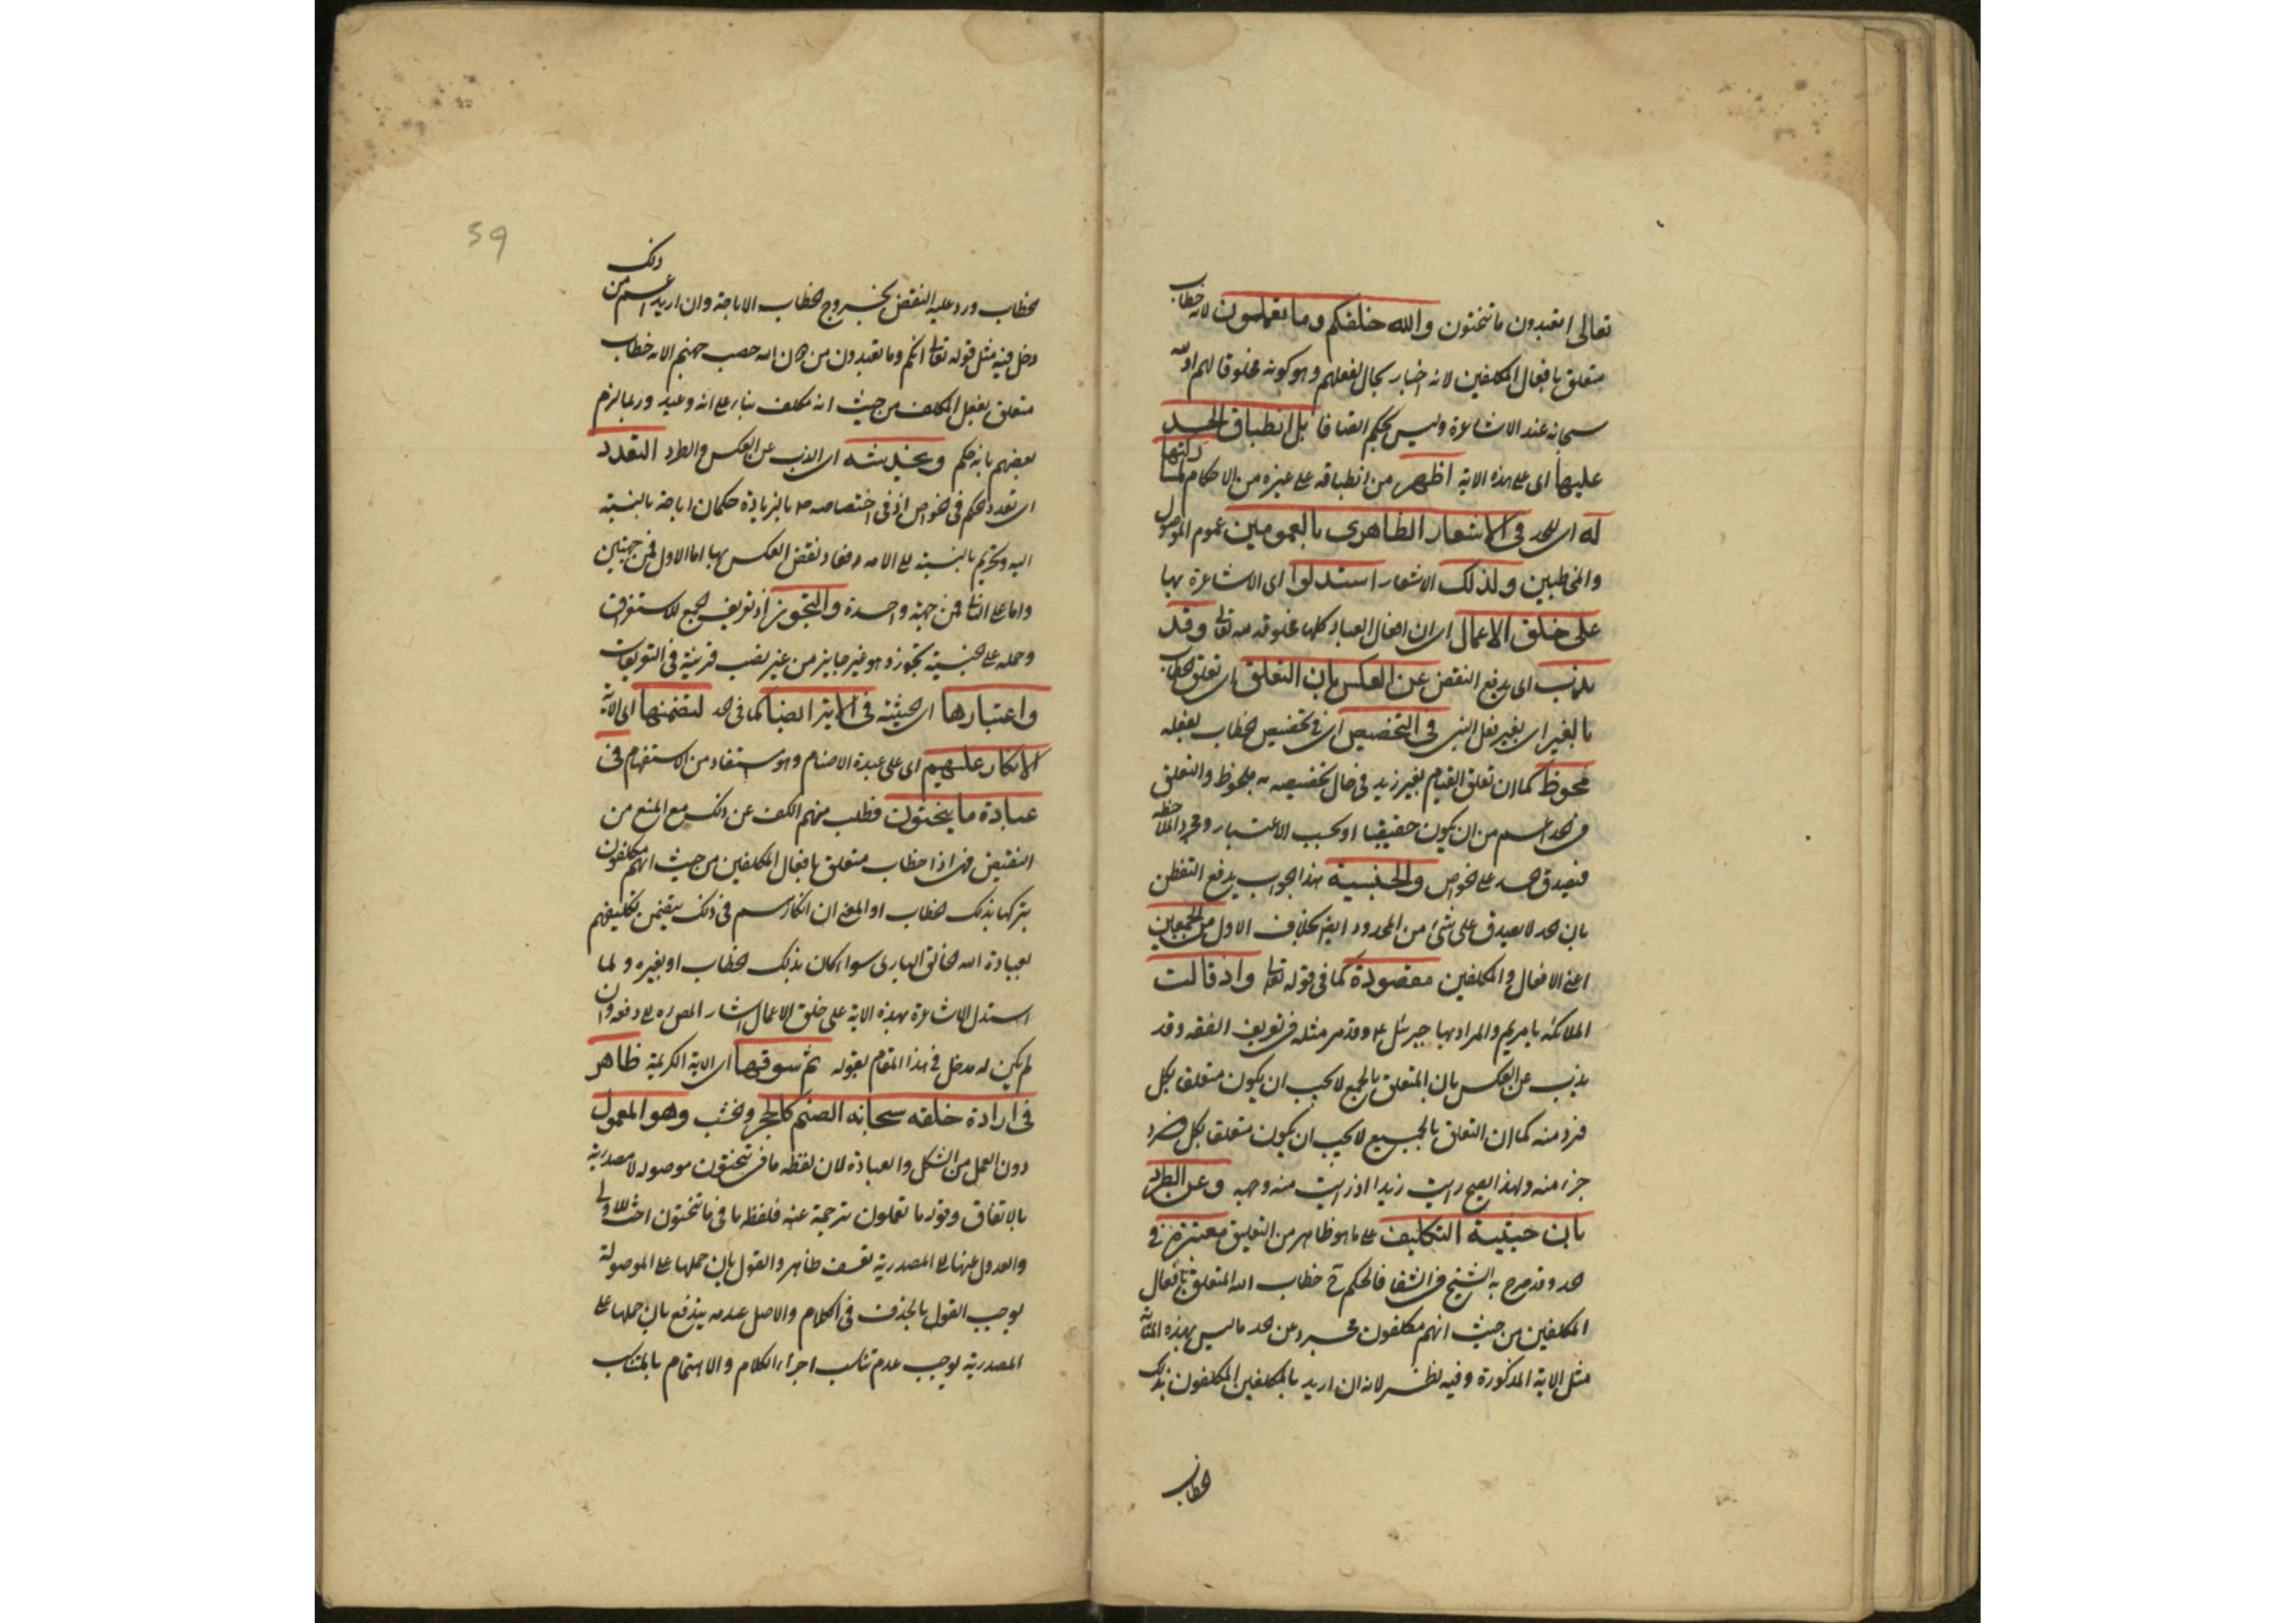 تعالى اتعبدون ما تنحتون والله خلقكم وما تعملون لانه خطاب
متعلق بافعال المكلفين لانه اخبار بحال لفعلهم وهو كونه مخلوقا لهم او لله
سبحانه عند الاشاعرة وليس بحكم اتفاقا بل انطباق الحد
عليها اى على هذه الاية اظهر من انطباقه على غيره من الاحكام
له اى للحد فى الاشعار الظاهرى بالعمومين عموم الموصول
والمخاطبين ولذلك الاشعار استدلوا اى الاشاعرة بها
على خلق الاعمال اى ان افعال العباد كلها مخلوقه لله تعالى وقد
يذب اى يدفع النقض عن العكس بان التعلق اى تعلق الخطاب
بالغير اى بغير فعل النبى فى التخصيص اى فى تخصيص الخطاب بفعله
ملحوظ كما ان تعلق القيام بغير زيد فى حال تخصيصه به ملحوظ والتعلق
فى الحد اعم من ان يكون حقيقيا او بحسب الاعتبار ومجرد الملاحظه
فيصدق الحد على الخواص والجنسية هذا جواب يدفع النقض
بان الحد لا يصدق على شئ من المحدود ايضا بخلاف الاول من الجمعين
اعنى الافعال والمكلفين مقصودة كما فى قوله تعالى واذ قالت
الملائكة يا مريم والمراد بها جبرئل ع وقد مر مثله فى تعريف الفقه وقد
يذب عن العكس بان المتعلق بالجمع لا يجب ان يكون متعلق بكل
فرد منه كما ان التعلق بالجميع لا يجب ان يكون متعلق بكل
جزء منه ولهذا يصح رايت زيدا اذ رايت منه وجهه وعن الطرد
بان حيثية التكليف على ما هو ظاهر من التعليق معتبرة فى
الحد وقد صرح به الشيخ فى الشفا فالحكم ح خطاب الله المتعلق بافعال
المكلفين من حيث انهم مكلفون فخرج عن الحد ما ليس بهذه المثابة
مثل الاية المذكورة وفيه نظر لانه ان اريد بالمكلفين المكلفون بذلك
الخطاب
59
الخطاب ورد عليه النقض بخروج الخطاب الاباحة وان اريد اعم من ذلك
دخل فيه مثل قوله تعالى انكم وما تعبدون من دون الله حصب جهنم الانه خطاب
متعلق بفعل المكلف من حيث انه مكلف بناء على انه وعيد وربما الزم
بعضهم بانه حكم ويخدشه اى الذب عن العكس والطرد التعدد
اى تعدد الحكم فى الخواص اذ فى اختصاصه ص بالزيادة حكمان اباحة بالنسبة
اليه وتحريم بالنسبة على الامه فعاد نقض العكس بها اما الاول فمن جهتين
واما على الثانى فمن جهة واحدة والتجوز اذ تعريف الجمع للاستغراق
وحمله على الجنسية تجوز وهو غير جايز من غير نصب قرينة فى التعريفات
واعتبارها اى الحيثية فى الاية ايضا كما فى الحد لتضمنها اى الاية
الانكار عليهم اى على عبدة الاصنام وهو مستفاد من الاستفهام فى
عبادة ما ينحتون فطلب منهم الكف عن ذلك مع المنع من
النقيض فهى اذا خطاب متعلق بافعال المكلفين من حيث انهم مكلفون
بتركها بذلك الخطاب او المعنى ان انكارهم فى ذلك يتضمن تكليفهم
بعبادة الله الخالق البارى سواء كان بذلك الخطاب او بغيره ولما
استدل الاشاعرة بهذه الاية على خلق الاعمال اشار المص ره الى دفعه وان
لم يكن له مدخل فى هذا المقام بقوله ثم سوقها اى الاية الكريمة ظاهر
فى ارادة خلقه سبحانه الصنم كالحجر والخشب وهو المعمول
دون العمل من الشكل والعبادة لان لفظه ما فى تنحتون موصولة لا مصدرية
بالاتفاق وقوله ما تعملون ترجمة عنه فلفظه ما فى ما تنحتون
والعدول عنها الى المصدرية تعسف ظاهر والقول بان حملها على الموصولة
يوجب القول بالحذف فى الكلام والاصل عدمه يندفع بان حملها على
المصدرية يوجب عدم تناسب اجزاء الكلام والاهتمام بالتناسب